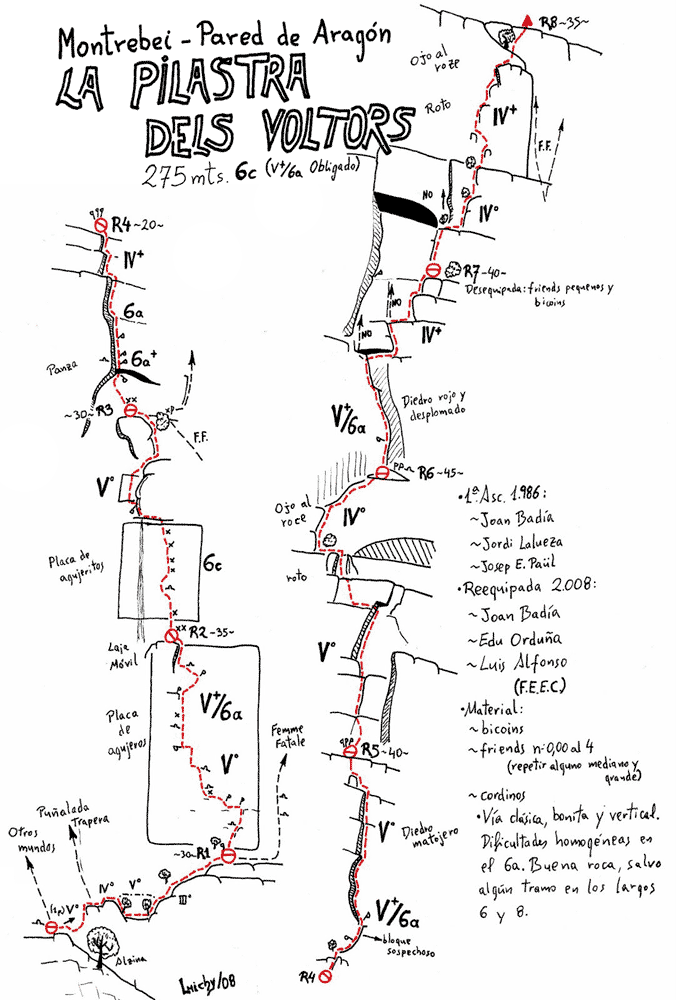 Montrebei - Pared de Aragón
LA PILASTRA
DELS VOLTORS
275 mts. 6c (V+/6a Obligado)
R8 ~35~
Ojo al
roze
Roto
IV+
F.F.
NO
IVº
R7 ~40~
Desequipada: friends pequeños y
bicoins
NO
NO
IV+
Diedro rojo y
desplomado
V+/6a
R6 ~45~
Ojo al
roce
IVº
roto
Vº
R5 ~40~
Vº
Diedro
matojero
V+/6a
bloque
sospechoso
R4
R4 ~20~
IV+
6a
6a+
Panza
~30~ R3
F.F.
Vº
Placa de
agujeritos
6c
R2 ~35~
Laje
Móvil
V+/6a
Placa
de
agujeros
Vº
Femme
Fatale
~30~ R1
Puñalada
Trapera
Otros
mundos
Vº
IVº
Vº
IIIº
Alzina
Luichy/08
•1ª Asc. 1.986:
~Joan Badía
~Jordi Lalueza
~Josep E. Paül
•Reequipada 2.008:
~Joan Badía
~Edu Orduña
~Luis Alfonso
(F.E.E.C.)
•Material:
~bicoins
~friends nº 0,00 al 4
(repetir alguno mediano y
grande)
~cordinos
•Vía clásica, bonita y vertical.
Dificultades homogéneas en
el 6a. Buena roca, salvo
algún tramo en los largos
6 y 8.